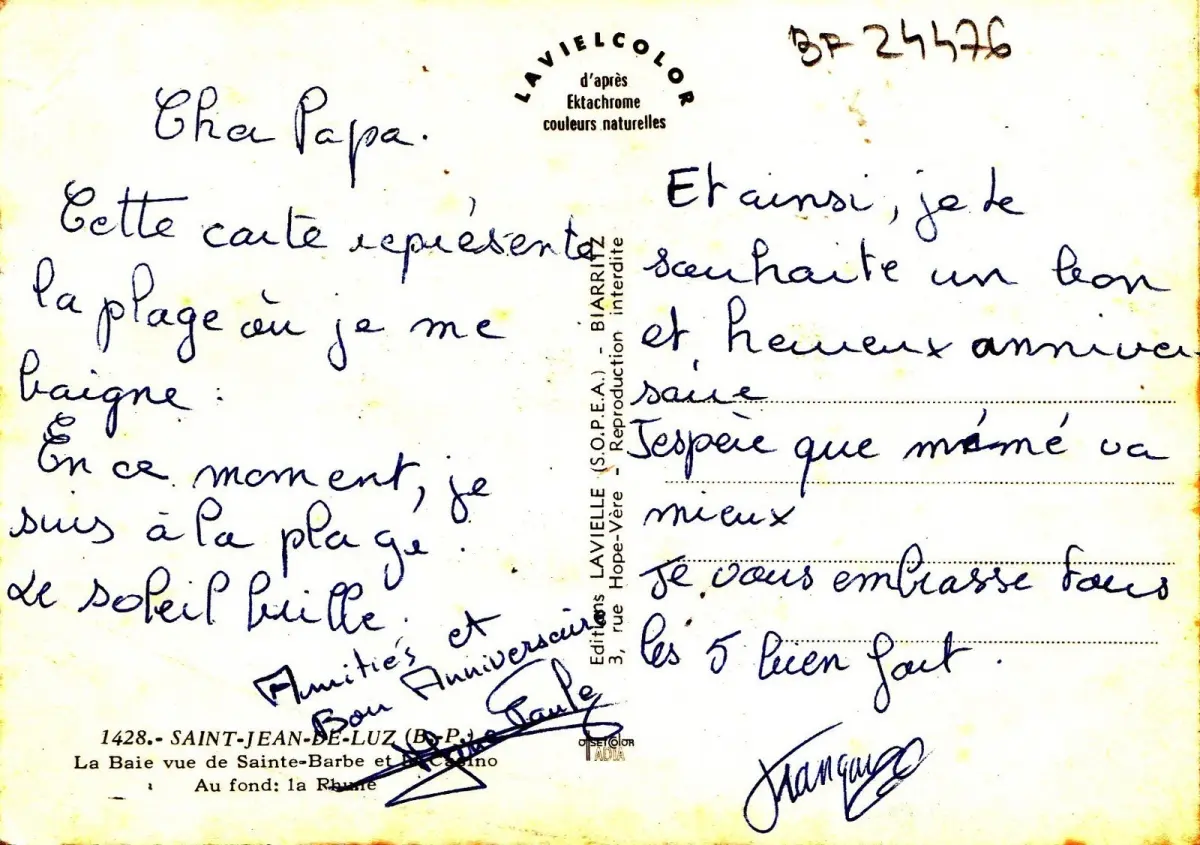 BF 24476
LAVIELCOLOR
d'après
Ektachrome
couleurs naturelles
Cher Papa.
Cette carte représente
la plage où je me
baigne.
En ce moment, je
suis à la plage.
Le soleil brille.
Amitiés et
Bon Anniversaire
Paule
1428.- SAINT-JEAN-DE-LUZ (B.-P.)
La Baie vue de Sainte-Barbe et le Casino
Au fond: la Rhune
Editions LAVIELLE (S.O.P.E.A.) - BIARRITZ
3, rue Hope-Vère - Reproduction interdite
OFFSETCOLOR
ADIA
Et ainsi, je te
souhaite un bon
et heureux anniver
saire
J'espère que mémé va
mieux
Je vous embrasse tous
les 5 bien fort.